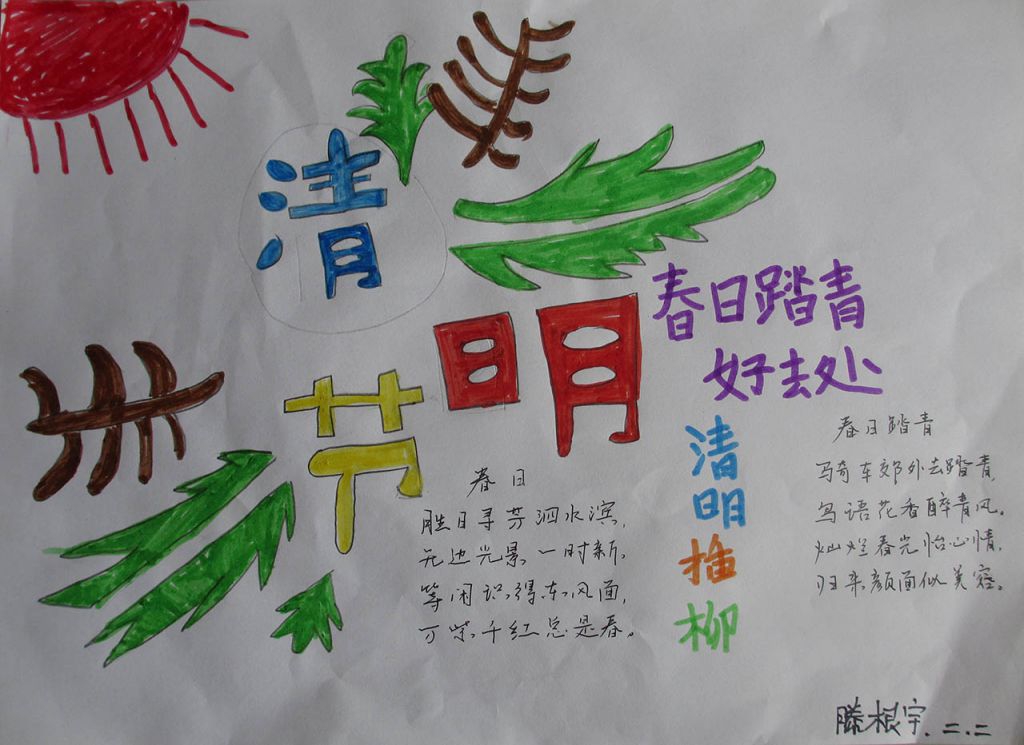 清
明
节
春日踏青
好去处
清明插柳
春日
胜日寻芳泗水滨,
无边光景一时新,
等闲识得东风面,
万紫千红总是春。
春日踏青
骑车郊外去踏青,
鸟语花香醉青风。
灿烂春光怡心情,
归来颜面似美容。
滕根宇.二.二